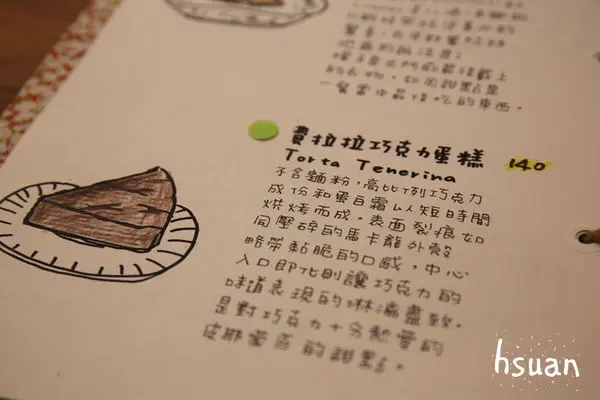 一餐當中最後吃的東西。
費拉拉巧克力蛋糕 140
Torta Tenerina
不含麵粉,高比例巧克力
成份和蛋白霜以短時間
烘烤而成。表面裂痕如
同壓碎的馬卡龍外殼
略帶黏脆的口感,中心
入口即化則讓巧克力的
味道表現的淋漓盡致。
是對巧克力十分熱愛的
的甜點。
hsuan